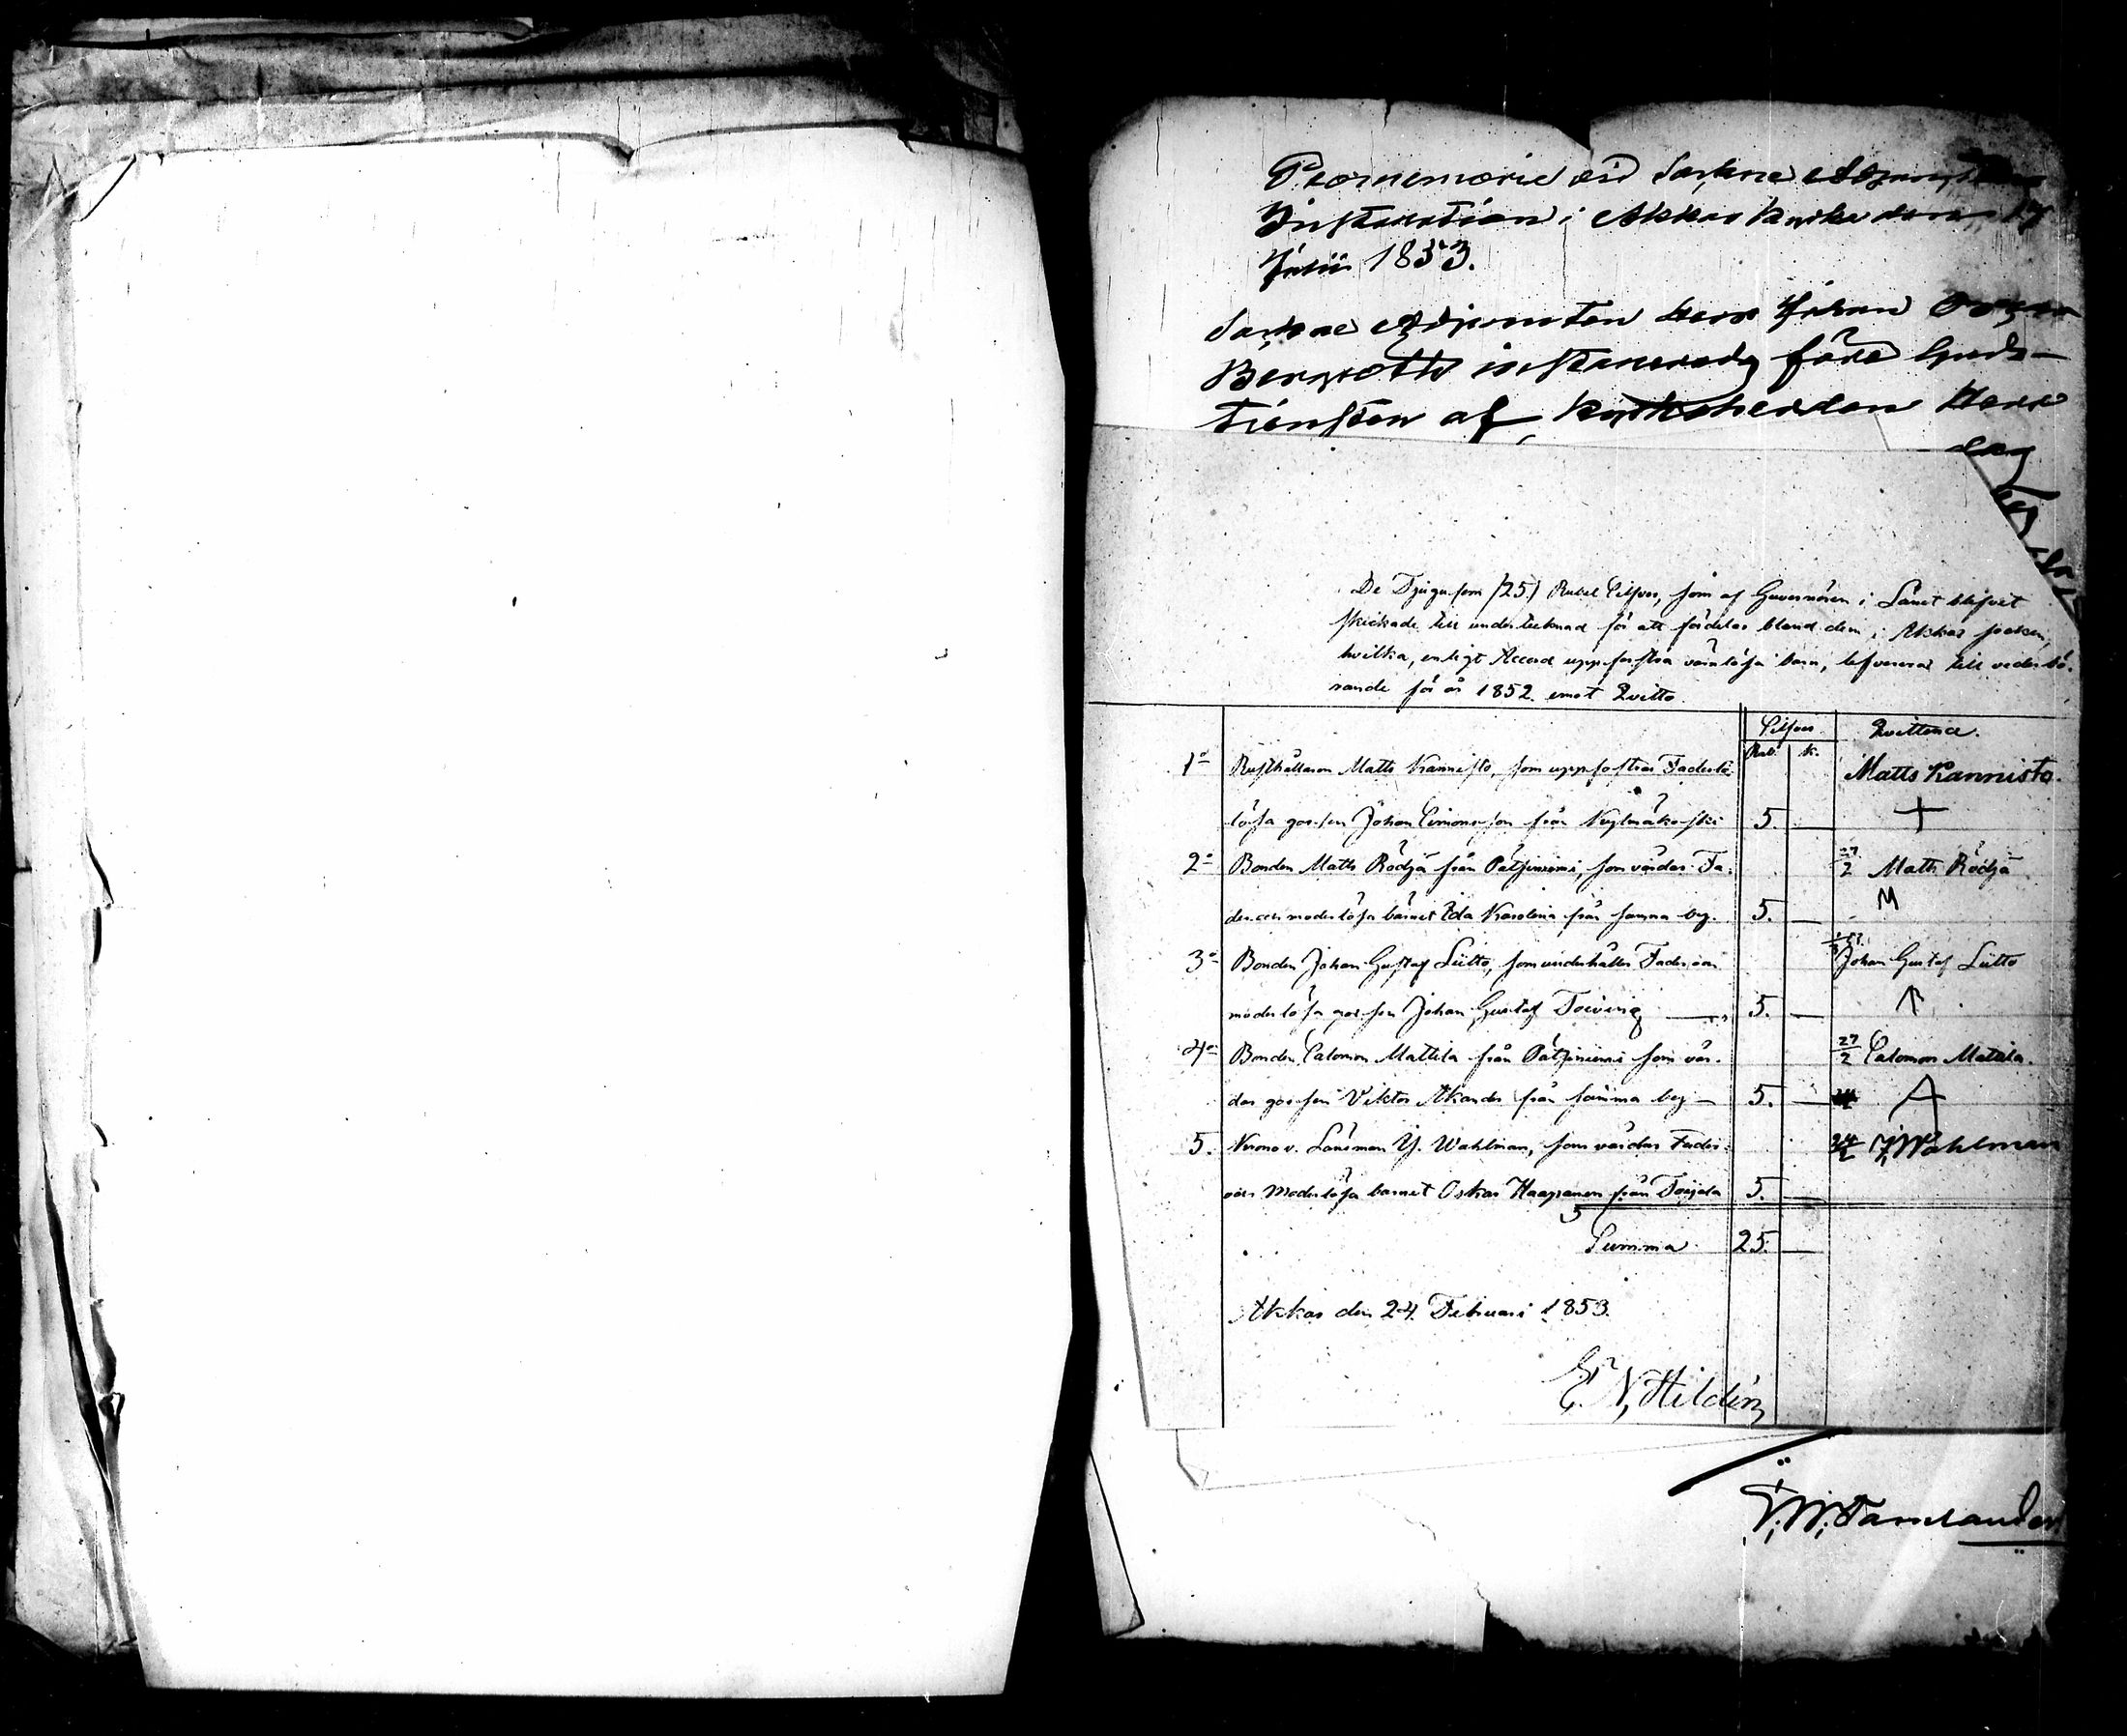 Promemoria vid Sockne Adjuncts
Installation i Akkas kyrka den 17
Julii 1853.
Sockne Adjuncten Herr Johan
installerades före Guds-
tiensten af Kyrkoherden Herr
dag
De Tjugufem /25/ Rubel Silfver, som af Guvernören i Länet blifvit
skickade till undertecknad för att fördelas bland dem i Akkas socken,
hvilka, enligt Accord uppfostra värnlösa barn, lefvereras till vederbö-
rande för år 1852 emot Qvitto.
Silfver Qvittence.
Rub. k.
1o Rusthållaren Matts Kannisto, som uppfostrar Faderlö- Matts Kannisto.
lösa gossen Johan Simonsson från Kylmäkoski 5. — +
2o Bonden Matts Rödjä från Pätsiniemi, som vårdar Fa- 27/2 Matts Rödjä
der och moderlösa barnet Ida Karolina från samma by. 5. — M
3o Bonden Johan Gustaf Liitto, som underhåller Fader och Johan Gustaf Liitto
moderlösa gossen Johan Gustaf Toiving — 5. —
4o Bonden Salomon Mattila från Pätsiniemi som vår- 27/2 Salomon Mattila.
dar gossen Viktor Akander från samma by — 5. — A
5. Krono v. Länsman J. Wahlman, som vårdar Fader- 24/2 J. Wahlman
och Moderlösa barnet Oskar Haapanen från Toijala 5. —
Summa 25. —
Akkas den 24 Februari 1853.
E. N. Hildén